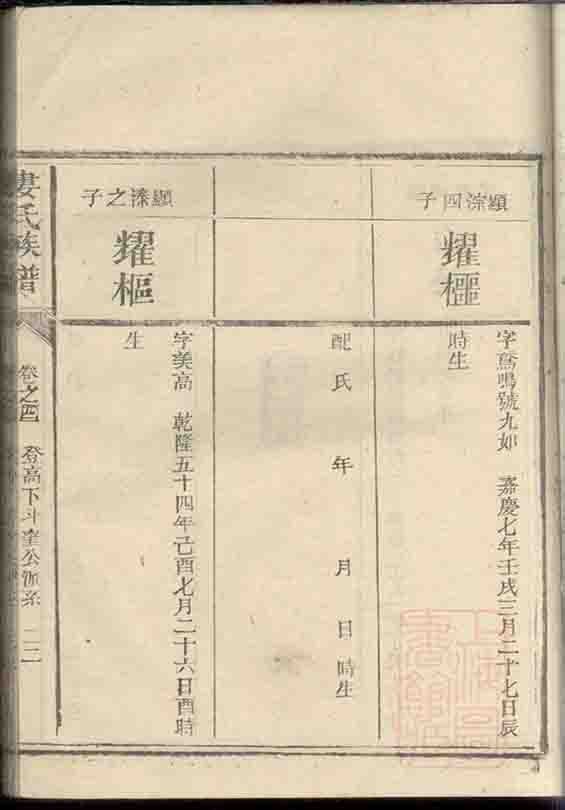 顯淙四子
耀樞
字鳴號九如 嘉慶七年壬戌三月二十七日辰
時生
配氏 年 月 日 時生
顯溱之子
耀樞
字美高 乾隆五十四年己酉七月二十六日酉時
生
婁氏族譜
卷之四
登高下斗窪公派系
二二